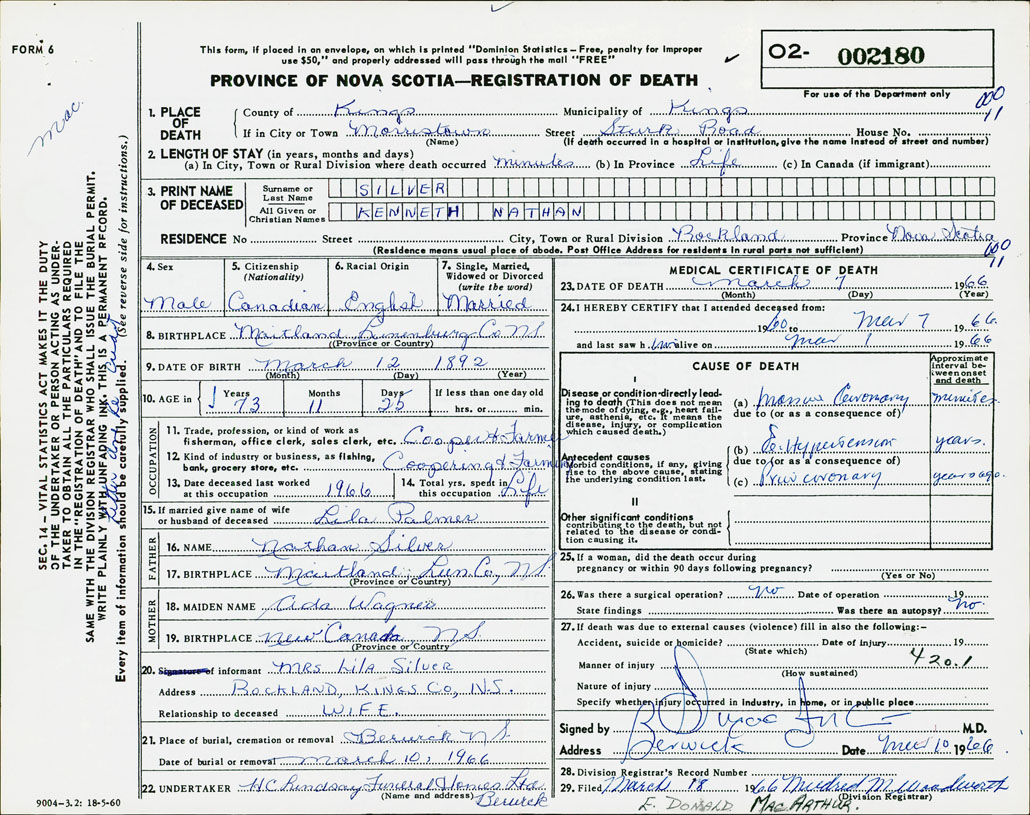 FORM 6
This form, if placed in an envelope, on which is printed "Dominion Statistics – Free, penalty for improper
use $50," and properly addressed will pass through the mail "FREE"
PROVINCE OF NOVA SCOTIA—REGISTRATION OF DEATH
O2- 002180
For use of the Department only
000
11
Mac.
SEC. 14 – VITAL STATISTICS ACT MAKES IT THE DUTY
OF THE UNDERTAKER OR PERSON ACTING AS UNDER-
TAKER TO OBTAIN ALL THE PARTICULARS REQUIRED
IN THE "REGISTRATION OF DEATH" AND TO FILE THE
SAME WITH THE DIVISION REGISTRAR WHO SHALL ISSUE THE BURIAL PERMIT.
WRITE PLAINLY WITH UNFADING INK. THIS IS A PERMANENT RECORD.
Every item of information should be carefully supplied. (See reverse side for instructions.)
1. PLACE OF DEATH
County of Kings Municipality of Kings
If in City or Town Morristown Street Sturk Road House No.
(Name) (If death occurred in a hospital or institution, give the name instead of street and number)
2. LENGTH OF STAY (in years, months and days)
(a) In City, Town or Rural Division where death occurred minutes (b) In Province Life (c) In Canada (if immigrant)
3. PRINT NAME OF DECEASED
Surname or Last Name SILVER
All Given or Christian Names KENNETH NATHAN
RESIDENCE No Street City, Town or Rural Division Rockland Province Nova Scotia
(Residence means usual place of abode. Post Office Address for residents in rural parts not sufficient)
000
11
4. Sex Male
5. Citizenship (Nationality) Canadian
6. Racial Origin English
7. Single, Married, Widowed or Divorced (write the word) Married
8. BIRTHPLACE Maitland Lunenburg Co NS
(Province or Country)
9. DATE OF BIRTH March 12 1892
(Month) (Day) (Year)
10. AGE in Years 73 Months 11 Days 25 If less than one day old hrs. or min.
OCCUPATION
11. Trade, profession, or kind of work as
fisherman, office clerk, sales clerk, etc. Cooper & Farmer
12. Kind of industry or business, as fishing,
bank, grocery store, etc. Coopering & Farming
13. Date deceased last worked at this occupation 1966
14. Total yrs. spent in this occupation Life
15. If married give name of wife or husband of deceased Lila Palmer
FATHER
16. NAME Nathan Silver
17. BIRTHPLACE Maitland, Lun. Co, NS
(Province or Country)
MOTHER
18. MAIDEN NAME Ada Wagner
19. BIRTHPLACE New Canada, NS.
(Province or Country)
20. Signature of informant MRS LILA SILVER
Address ROCKLAND, KINGS CO, N.S.
Relationship to deceased WIFE.
21. Place of burial, cremation or removal Berwick NS
Date of burial or removal March 10, 1966
22. UNDERTAKER H C Lindsay Funeral Homes Ltd
(Name and address) Berwick
9004-3.2: 18-5-60
MEDICAL CERTIFICATE OF DEATH
23. DATE OF DEATH March 7 1966
(Month) (Day) (Year)
24. I HEREBY CERTIFY that I attended deceased from:
1960 to Mar 7 1966
and last saw him alive on Mar 1 1966
CAUSE OF DEATH
Approximate interval between onset and death
I
Disease or condition directly leading to death (This does not mean
the mode of dying, e.g., heart failure, asthenia, etc. It means the
disease, injury, or complication which caused death.)
(a) Massive Coronary minutes
due to (or as a consequence of)
Antecedent causes
Morbid conditions, if any, giving rise to the above cause, stating
the underlying condition last.
(b) Ess. Hypertension years.
due to (or as a consequence of)
(c) Prev coronary years ago.
II
Other significant conditions
contributing to the death, but not related to the disease or condition causing it.
25. If a woman, did the death occur during
pregnancy or within 90 days following pregnancy?
(Yes or No)
26. Was there a surgical operation? no Date of operation 19
State findings Was there an autopsy? no.
27. If death was due to external causes (violence) fill in also the following:-
Accident, suicide or homicide? Date of injury 19
(State which) 420.1
Manner of injury
(How sustained)
Nature of injury
Specify whether injury occurred in industry, in home, or in public place
Signed by M.D.
Address Berwick Date Mar 10 1966
28. Division Registrar's Record Number
29. Filed March 18 1966 Mildred M. Woodworth
(Division Registrar)
E. DONALD MACARTHUR.